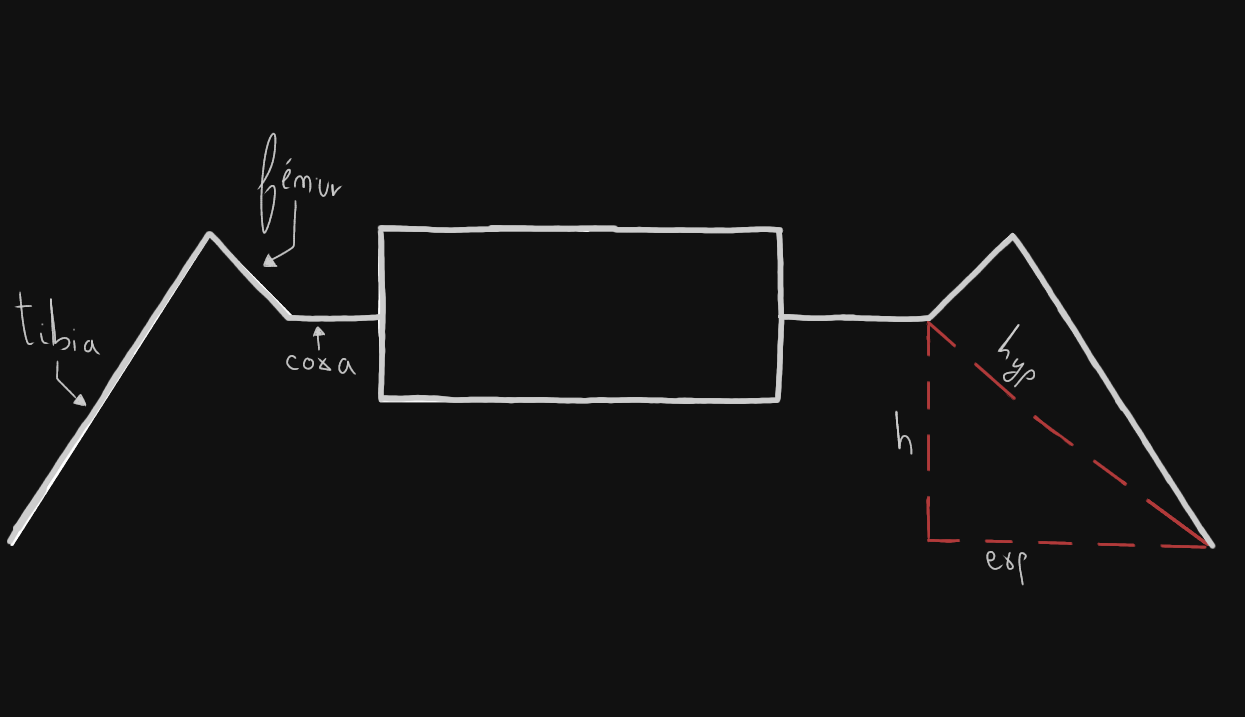 fémur
tibia
coxa
hyp
h
exp